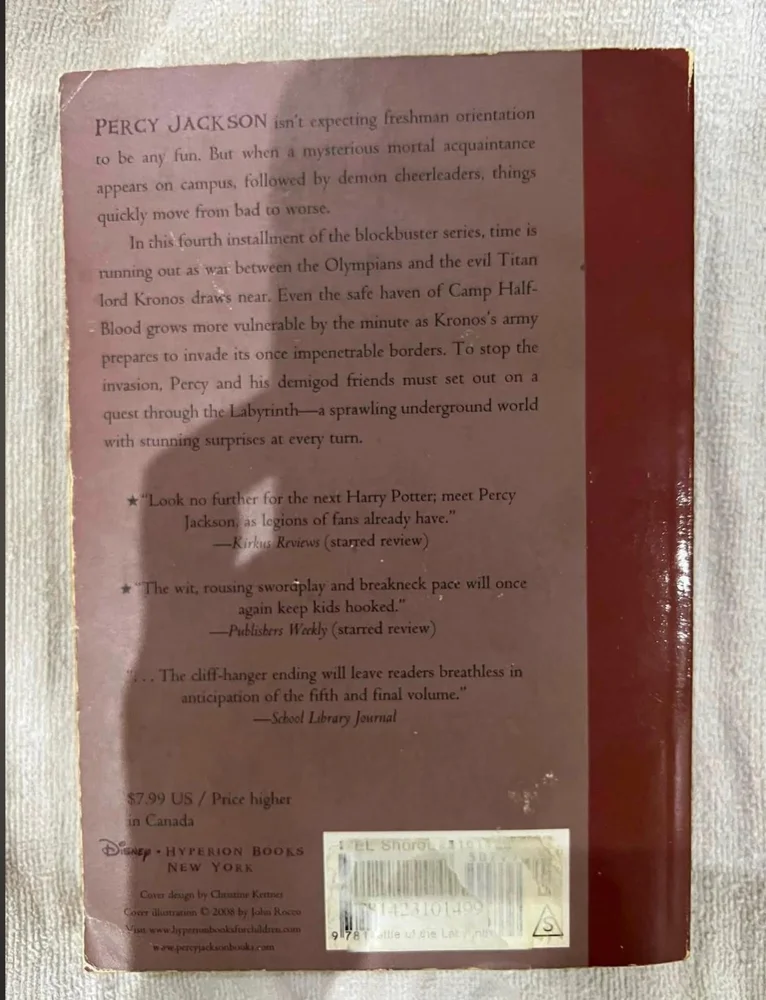 PERCY JACKSON isn't expecting freshman orientation
to be any fun. But when a mysterious mortal acquaintance
appears on campus, followed by demon cheerleaders, things
quickly move from bad to worse.
In this fourth installment of the blockbuster series, time is
running out as war between the Olympians and the evil Titan
lord Kronos draws near. Even the safe haven of Camp Half-
Blood grows more vulnerable by the minute as Kronos's army
prepares to invade its once impenetrable borders. To stop the
invasion, Percy and his demigod friends must set out on a
quest through the Labyrinth—a sprawling underground world
with stunning surprises at every turn.
★"Look no further for the next Harry Potter; meet Percy
Jackson, as legions of fans already have."
—Kirkus Reviews (starred review)
★"The wit, rousing swordplay and breakneck pace will once
again keep kids hooked."
—Publishers Weekly (starred review)
". . . The cliff-hanger ending will leave readers breathless in
anticipation of the fifth and final volume."
—School Library Journal
$7.99 US / Price higher
in Canada
Disney • HYPERION BOOKS
NEW YORK
Cover design by Christine Kettner
Cover illustration © 2008 by John Rocco
Visit www.hyperionbooksforchildren.com
www.percyjacksonbooks.com
EL Shorouk
9 781423101499
of the
S